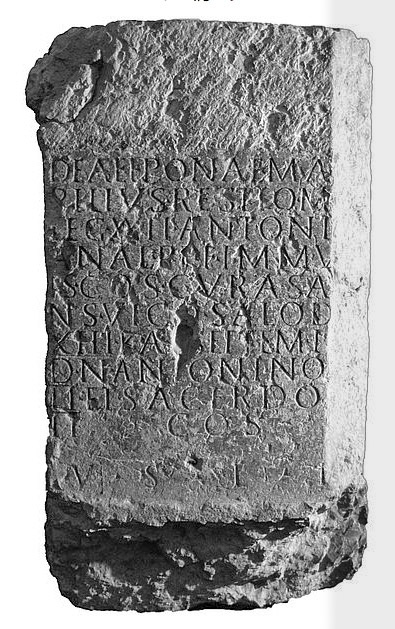 DEAE EPONAE MA
PILIVS RESTIO M
LEG XXII ANTONI
NIANAE P P F IMMV
IS COS CVRAS A
NS VIC SALOD
XIII KA SEPTEM
D N ANTONINO
III ET SACERDO
T COS
V S L